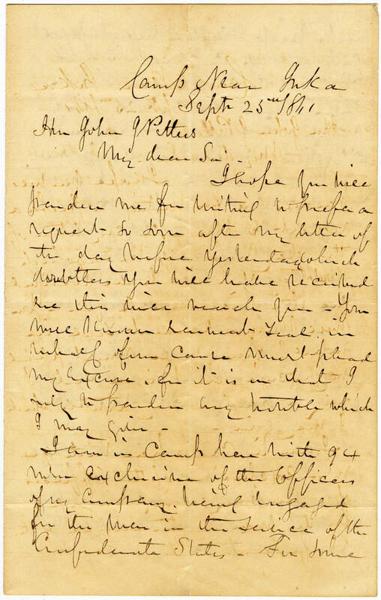 Camp Near Iuka
Sept 25th 1861
Hon John J Pettus
My dear Sir
I hope you will
pardon me for writing to prefer a
request so soon after my letter of
the day before yesterday which
doubtless you will have received
ere this will reach you - You
well known earnest zeal in
behalf of our cause must plead
my excuse, for it is in that I
rely to pardon any trouble which
I may give -
I am in Camp here with 94
men exclusive of the Officers
of my Company, being engaged
for the war in the service of the
Confederate States - For some